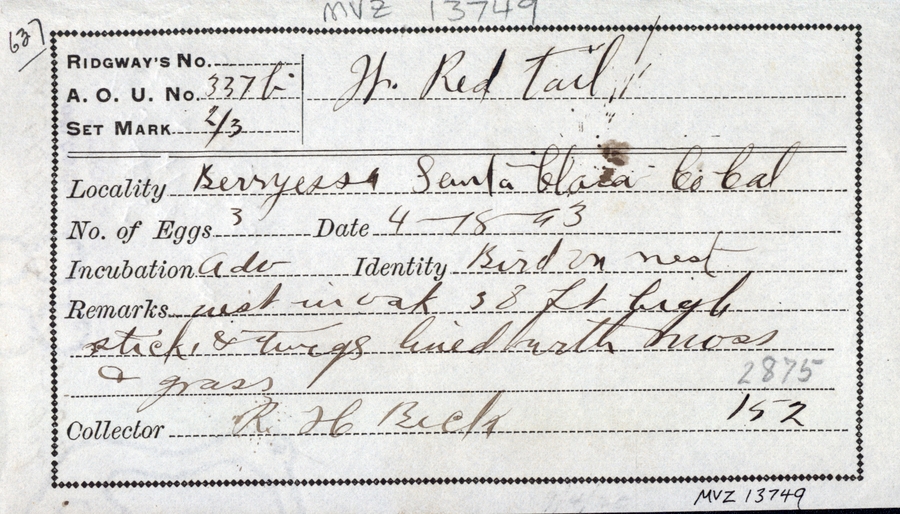 MVZ 13749
637
RIDGWAY'S No.
A. O. U. No. 337b
W. Red Tail
SET MARK 2/3
Locality Berryessa Santa Clara Co Cal
No. of Eggs 3 Date 4-18-93
Incubation adv Identity Bird on nest
Remarks nest in oak 38 ft high
sticks & twigs lined with moss
& grass 2875
Collector R. H Beck 152
MVZ 13749